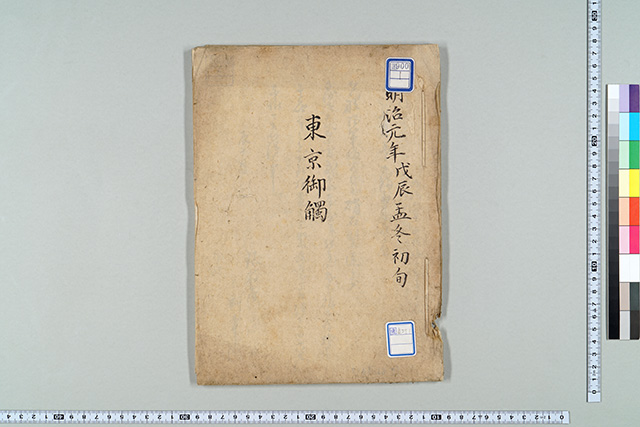 明治元年戊辰孟冬初旬
東京御觸